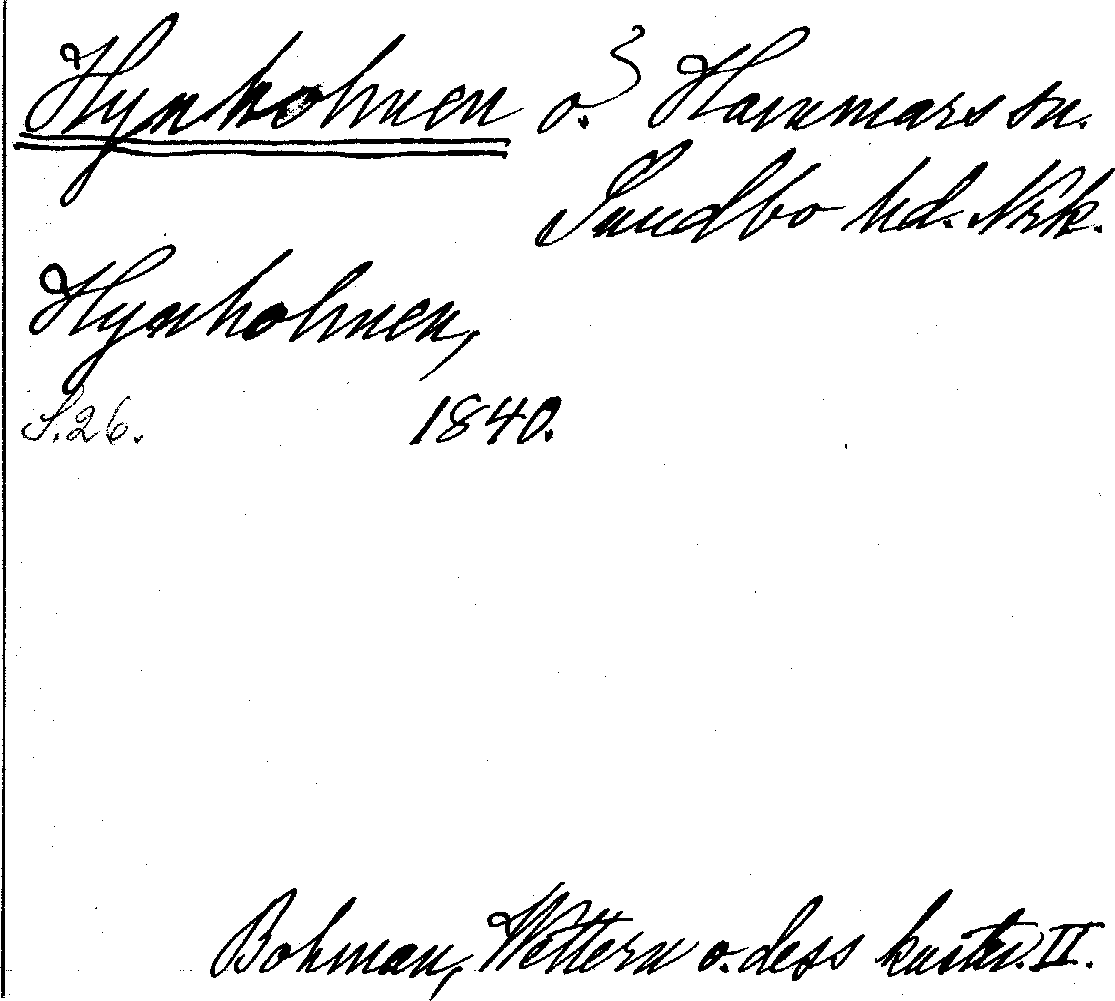 Hynholmen o.? Hammars sn.
Sundbo hd. Nrk.
Hynholmen,
S. 26. 1840.
Bohman, Wettern o. dess kuster. II.